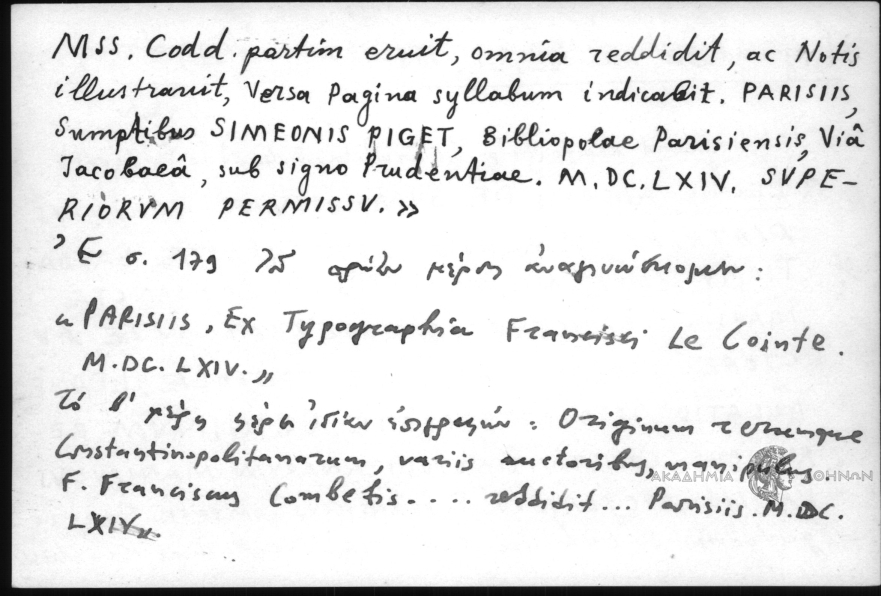 Mss. Codd. partim eruit, omnia reddidit, ac Notis
illustravit, Versa Pagina syllabum indicabit. PARISIIS,
Sumptibus SIMEONIS PIGET, Bibliopolae Parisiensis, Viâ
Jacobaeâ, sub signo Prudentiae. M.DC.LXIV. SVPE-
RIORVM PERMISSV. »
Ἐν σ. 179 τοῦ πρώτου μέρους ἀναγινώσκομεν :
« PARISIIS, Ex Typographia Francisci Le Cointe.
M.DC.LXIV. »
Τό β' μέρος φέρει ἰδίαν ἐπιγραφήν : Originum rerumque
Constantinopolitanarum, variis auctoribus, manipulus.
F. Franciscus Combefis .... reddidit ... Parisiis. M.DC.
LXIV »
ΑΚΑΔΗΜΙΑ ΑΘΗΝΩΝ